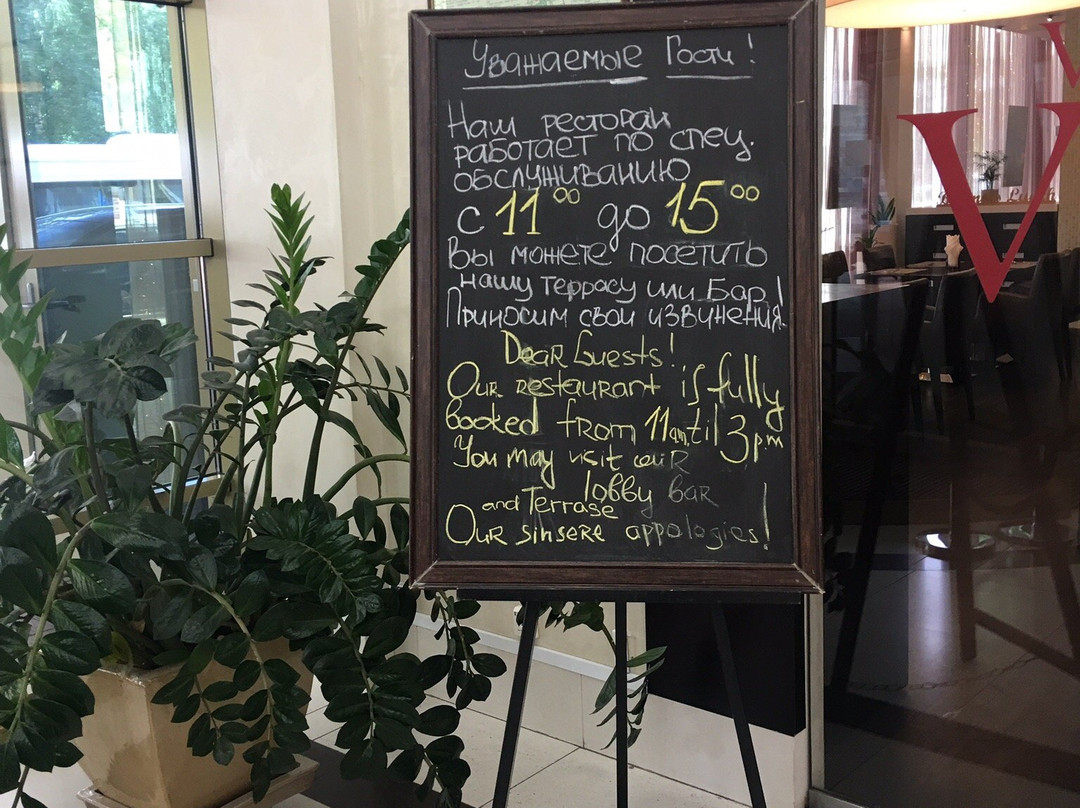 Уважаемые Гости!
Наш ресторан
работает по спец.
обслуживанию
с 11⁰⁰ до 15⁰⁰
Вы можете посетить
нашу террасу или Бар!
Приносим свои извинения.
Dear Guests!
Our restaurant is fully
booked from 11 until 3pm
You may visit our
lobby bar
and Terrase
Our sinsere appologies!
V